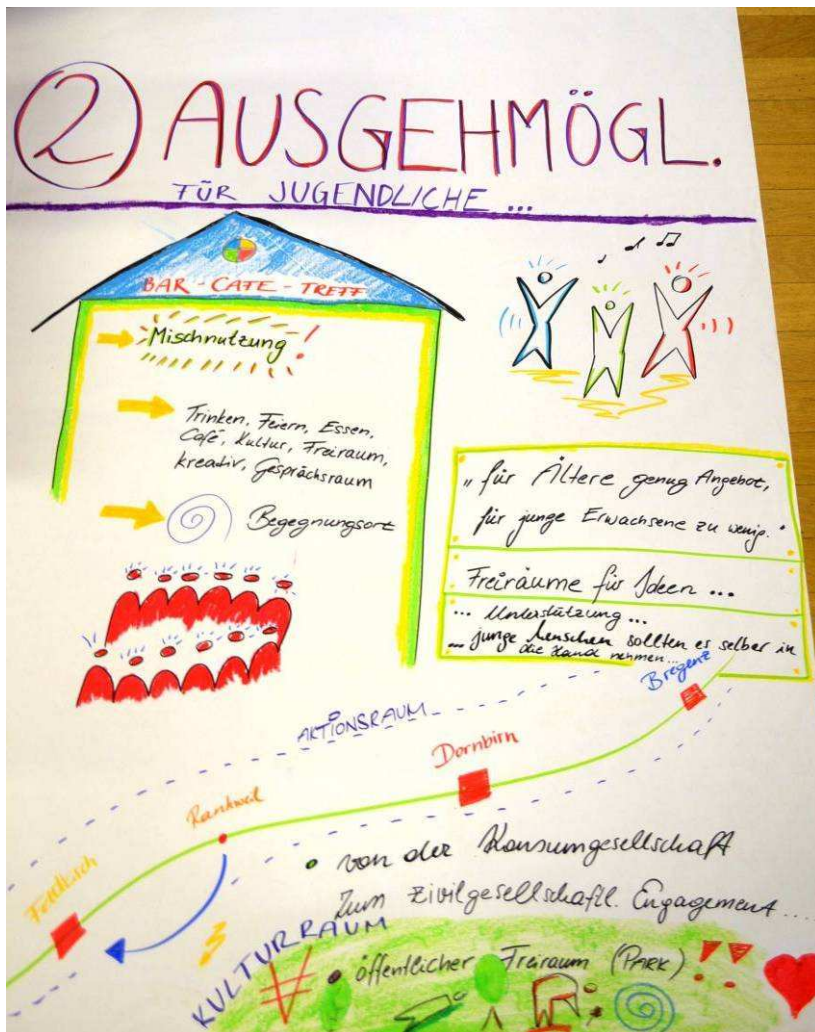 2 AUSGEHMÖGL.
FÜR JUGENDLICHE ...
BAR - CAFE - TREFF
Mischnutzung!
Trinken, Feiern, Essen,
Café, Kultur, Freiraum,
kreativ, Gesprächsraum
Begegnungsort
„für Ältere genug Angebot,
für junge Erwachsene zu wenig."
Freiräume für Ideen ...
... Unterstützung ...
... junge Menschen sollten es selber in
die Hand nehmen ...
Bregenz
AKTIONSRAUM
Dornbirn
Rankweil
Feldkirch
• von der Konsumgesellschaft
zum zivilgesellschaftl. Engagement ....
KULTURRAUM
• öffentlicher Freiraum (PARK)